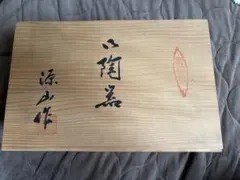 御陶器
源山作